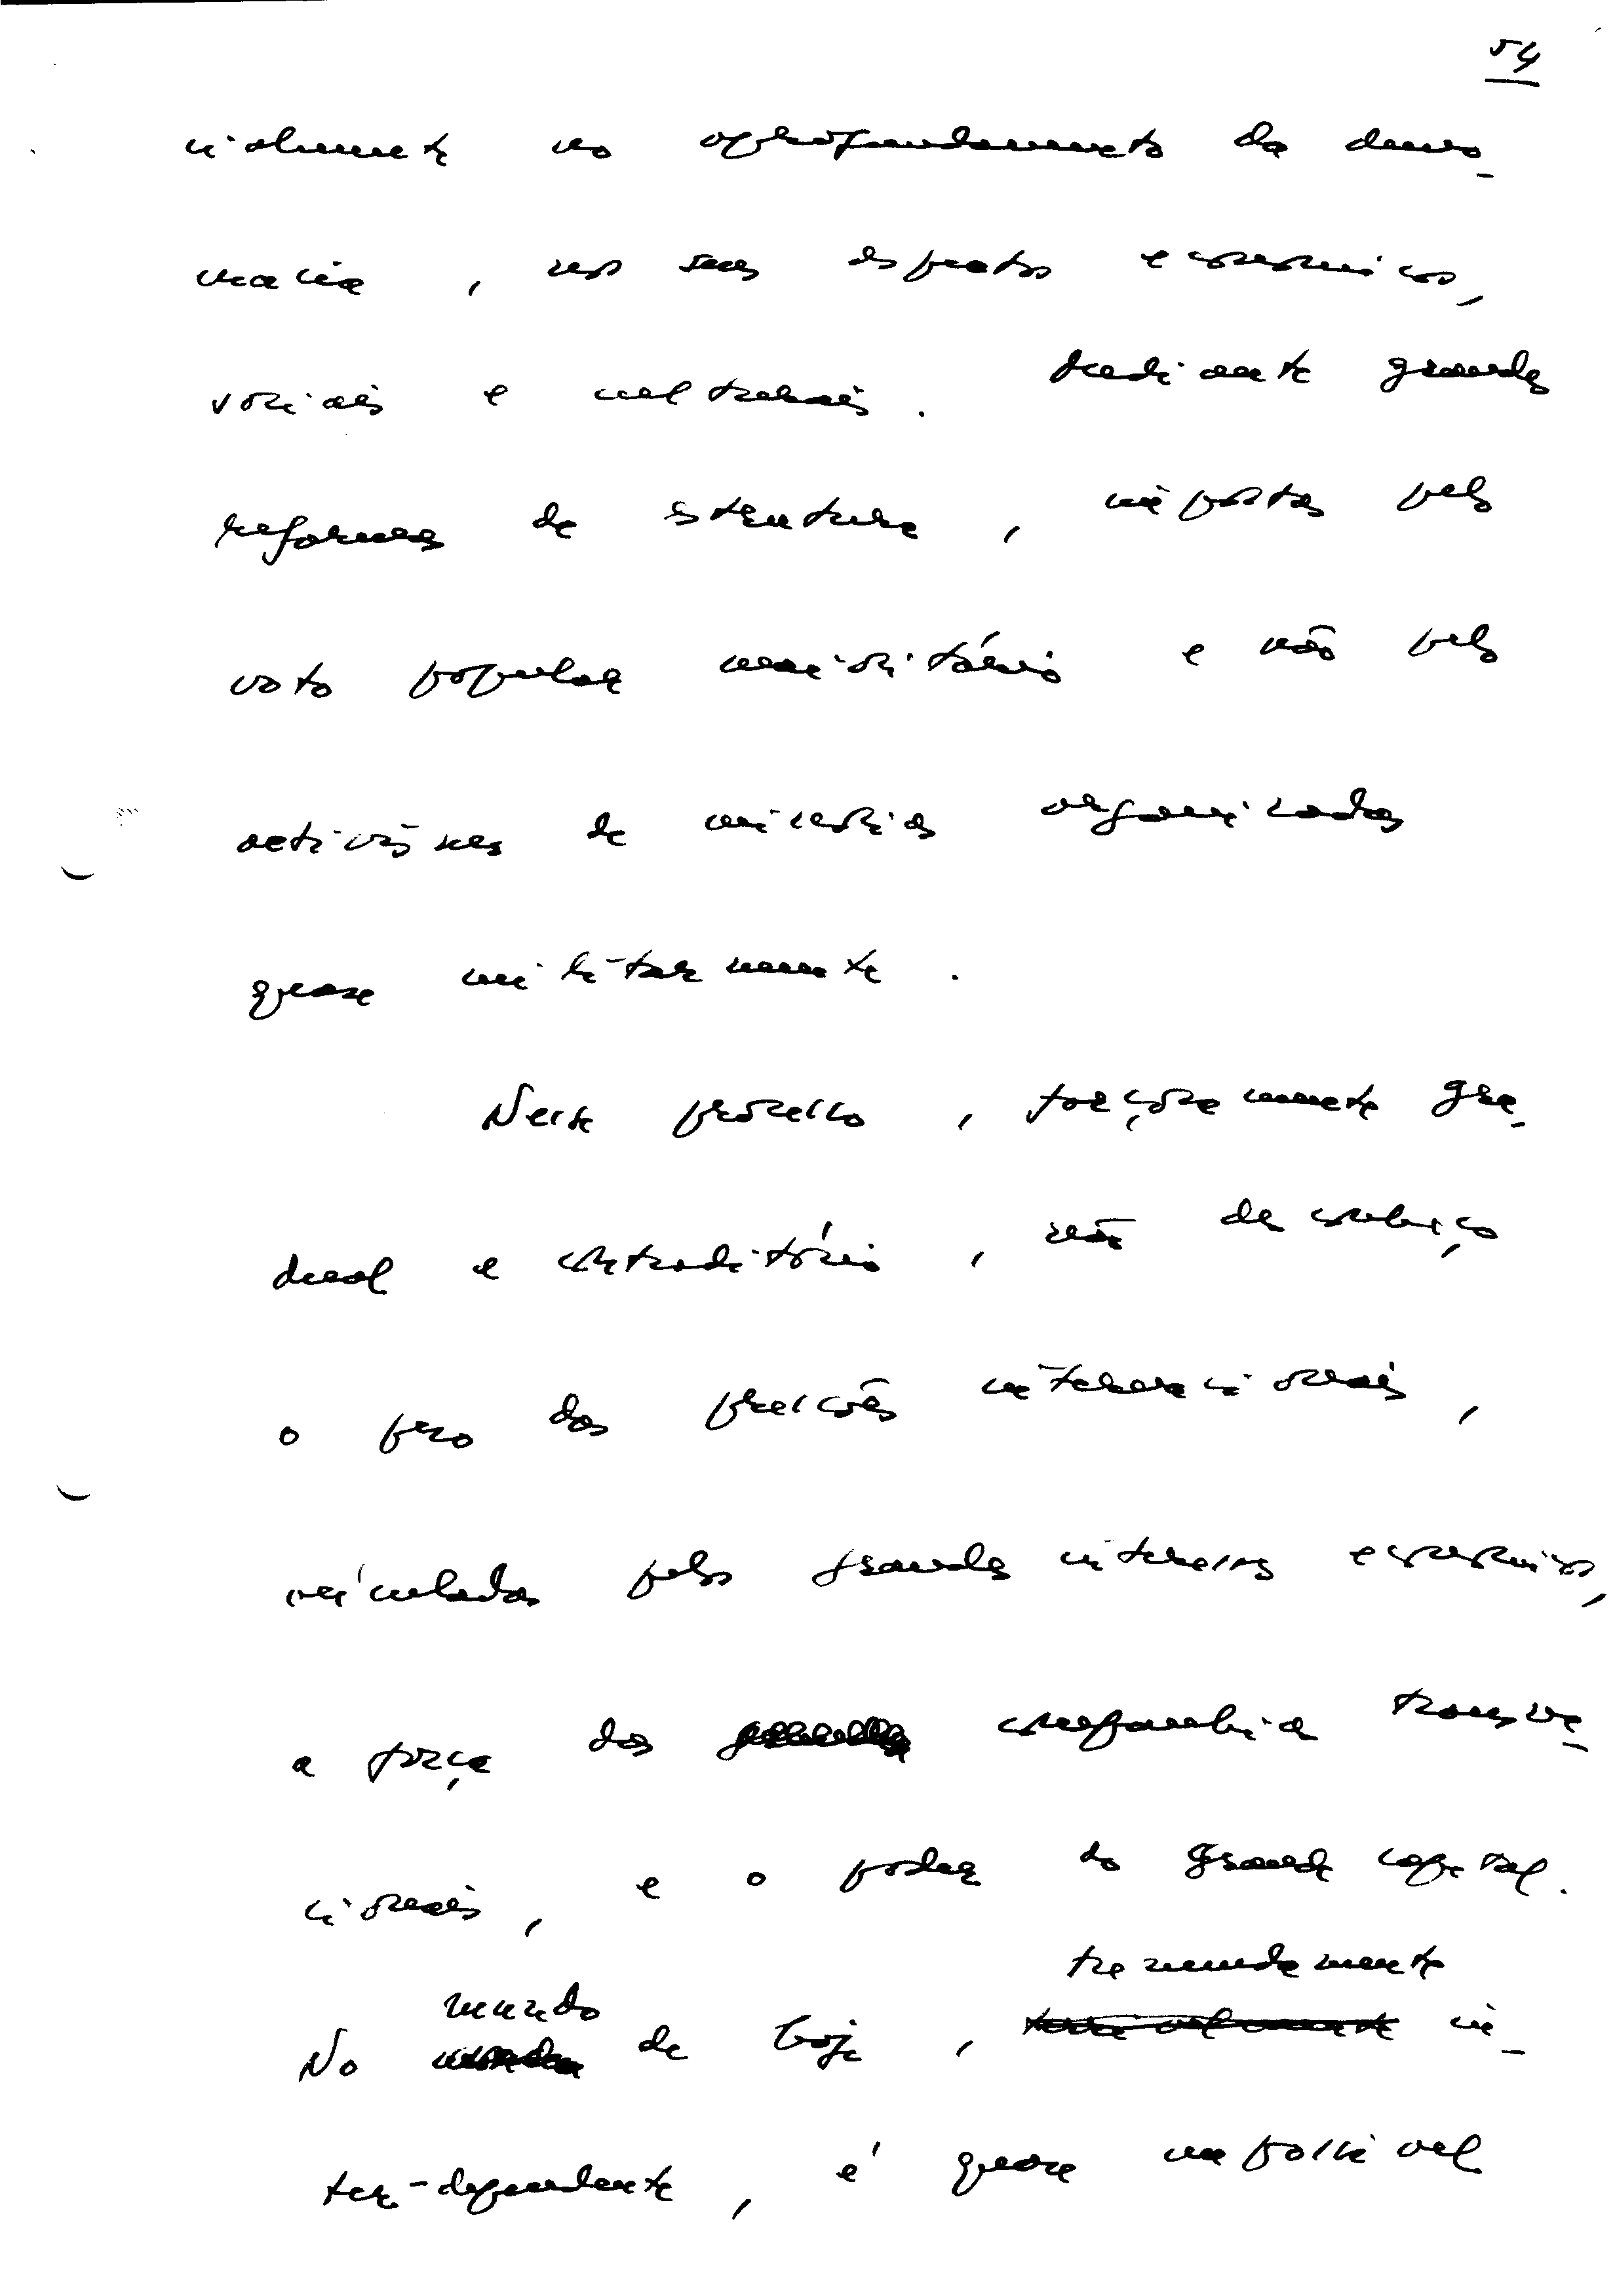 54
cialmente no aprofundamento da demo-
cracia, nos seus aspectos económicos,
sociais e culturais. Mediante grandes
reformas de estrutura, impostas pelo
voto popular maioritário e não pelo
activismo de minorias organizadas
quase militarmente.
Neste processo, forçosamente gra-
dual e contraditório, não desconheço
o peso das pressões internacionais,
veiculadas pelos grandes interesses económicos,
a força das companhias transna-
cionais, e o poder do grande capital.
tremendamente
mundo
No de hoje, in-
ter-dependente, é quase impossível